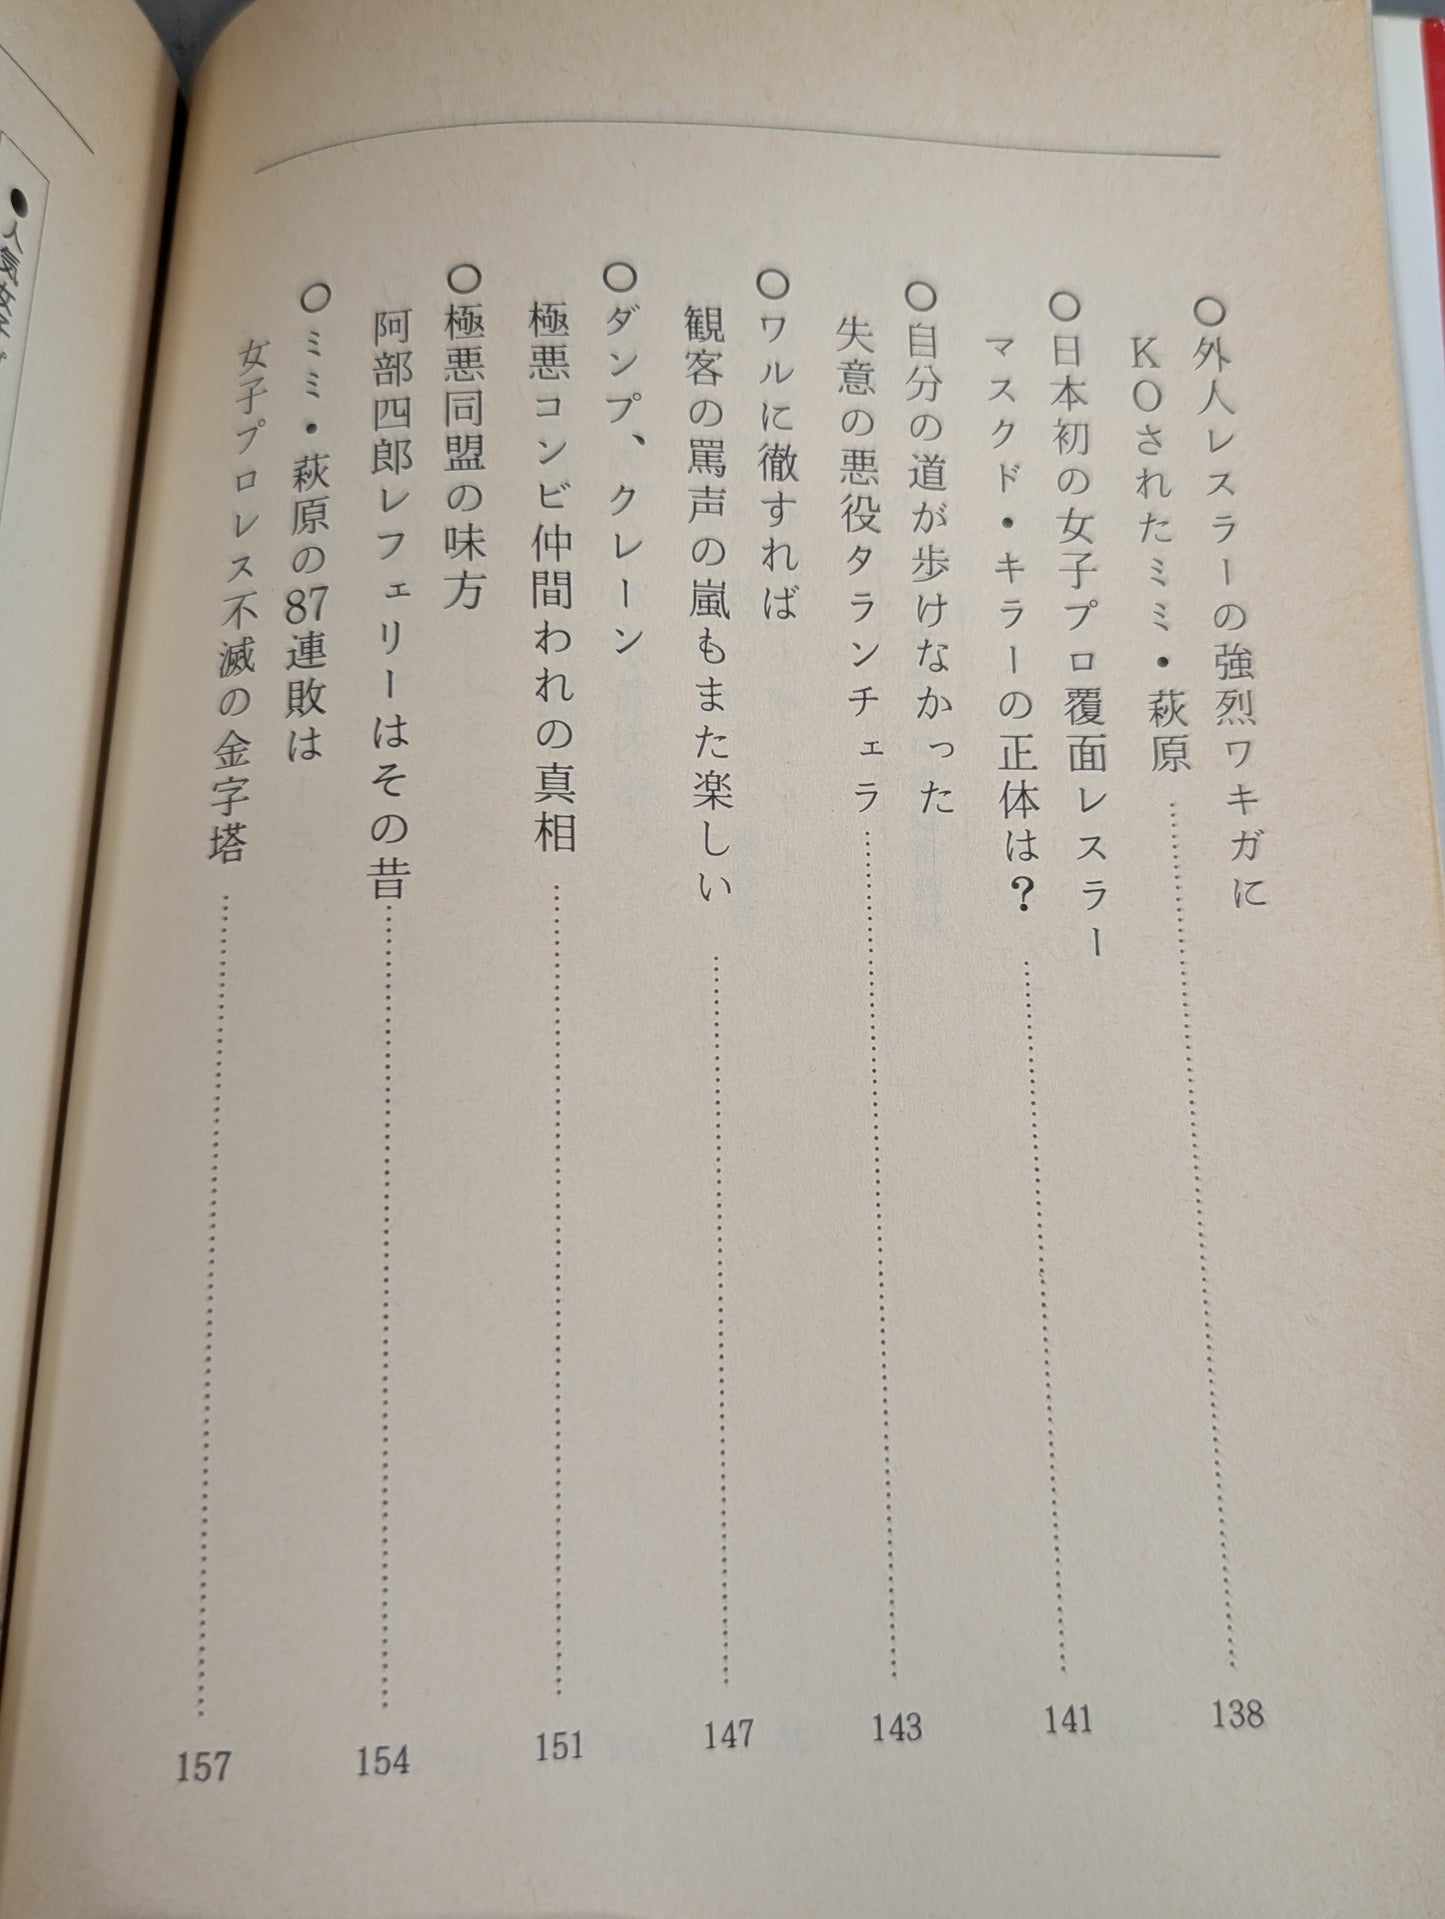 ○外人レスラーの強烈ワキガに
KOされたミミ・萩原……138
○日本初の女子プロ覆面レスラー
マスクド・キラーの正体は？……141
○自分の道が歩けなかった
失意の悪役タランチェラ……143
○ワルに徹すれば
観客の罵声の嵐もまた楽しい……147
○ダンプ、クレーン
極悪コンビ仲間われの真相……151
○極悪同盟の味方
阿部四郎レフェリーはその昔……154
○ミミ・萩原の87連敗は
女子プロレス不滅の金字塔……157
●人気女子